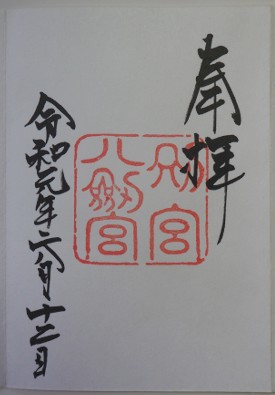 奉拝
別宮
八劔宮
令和元年六月十二日